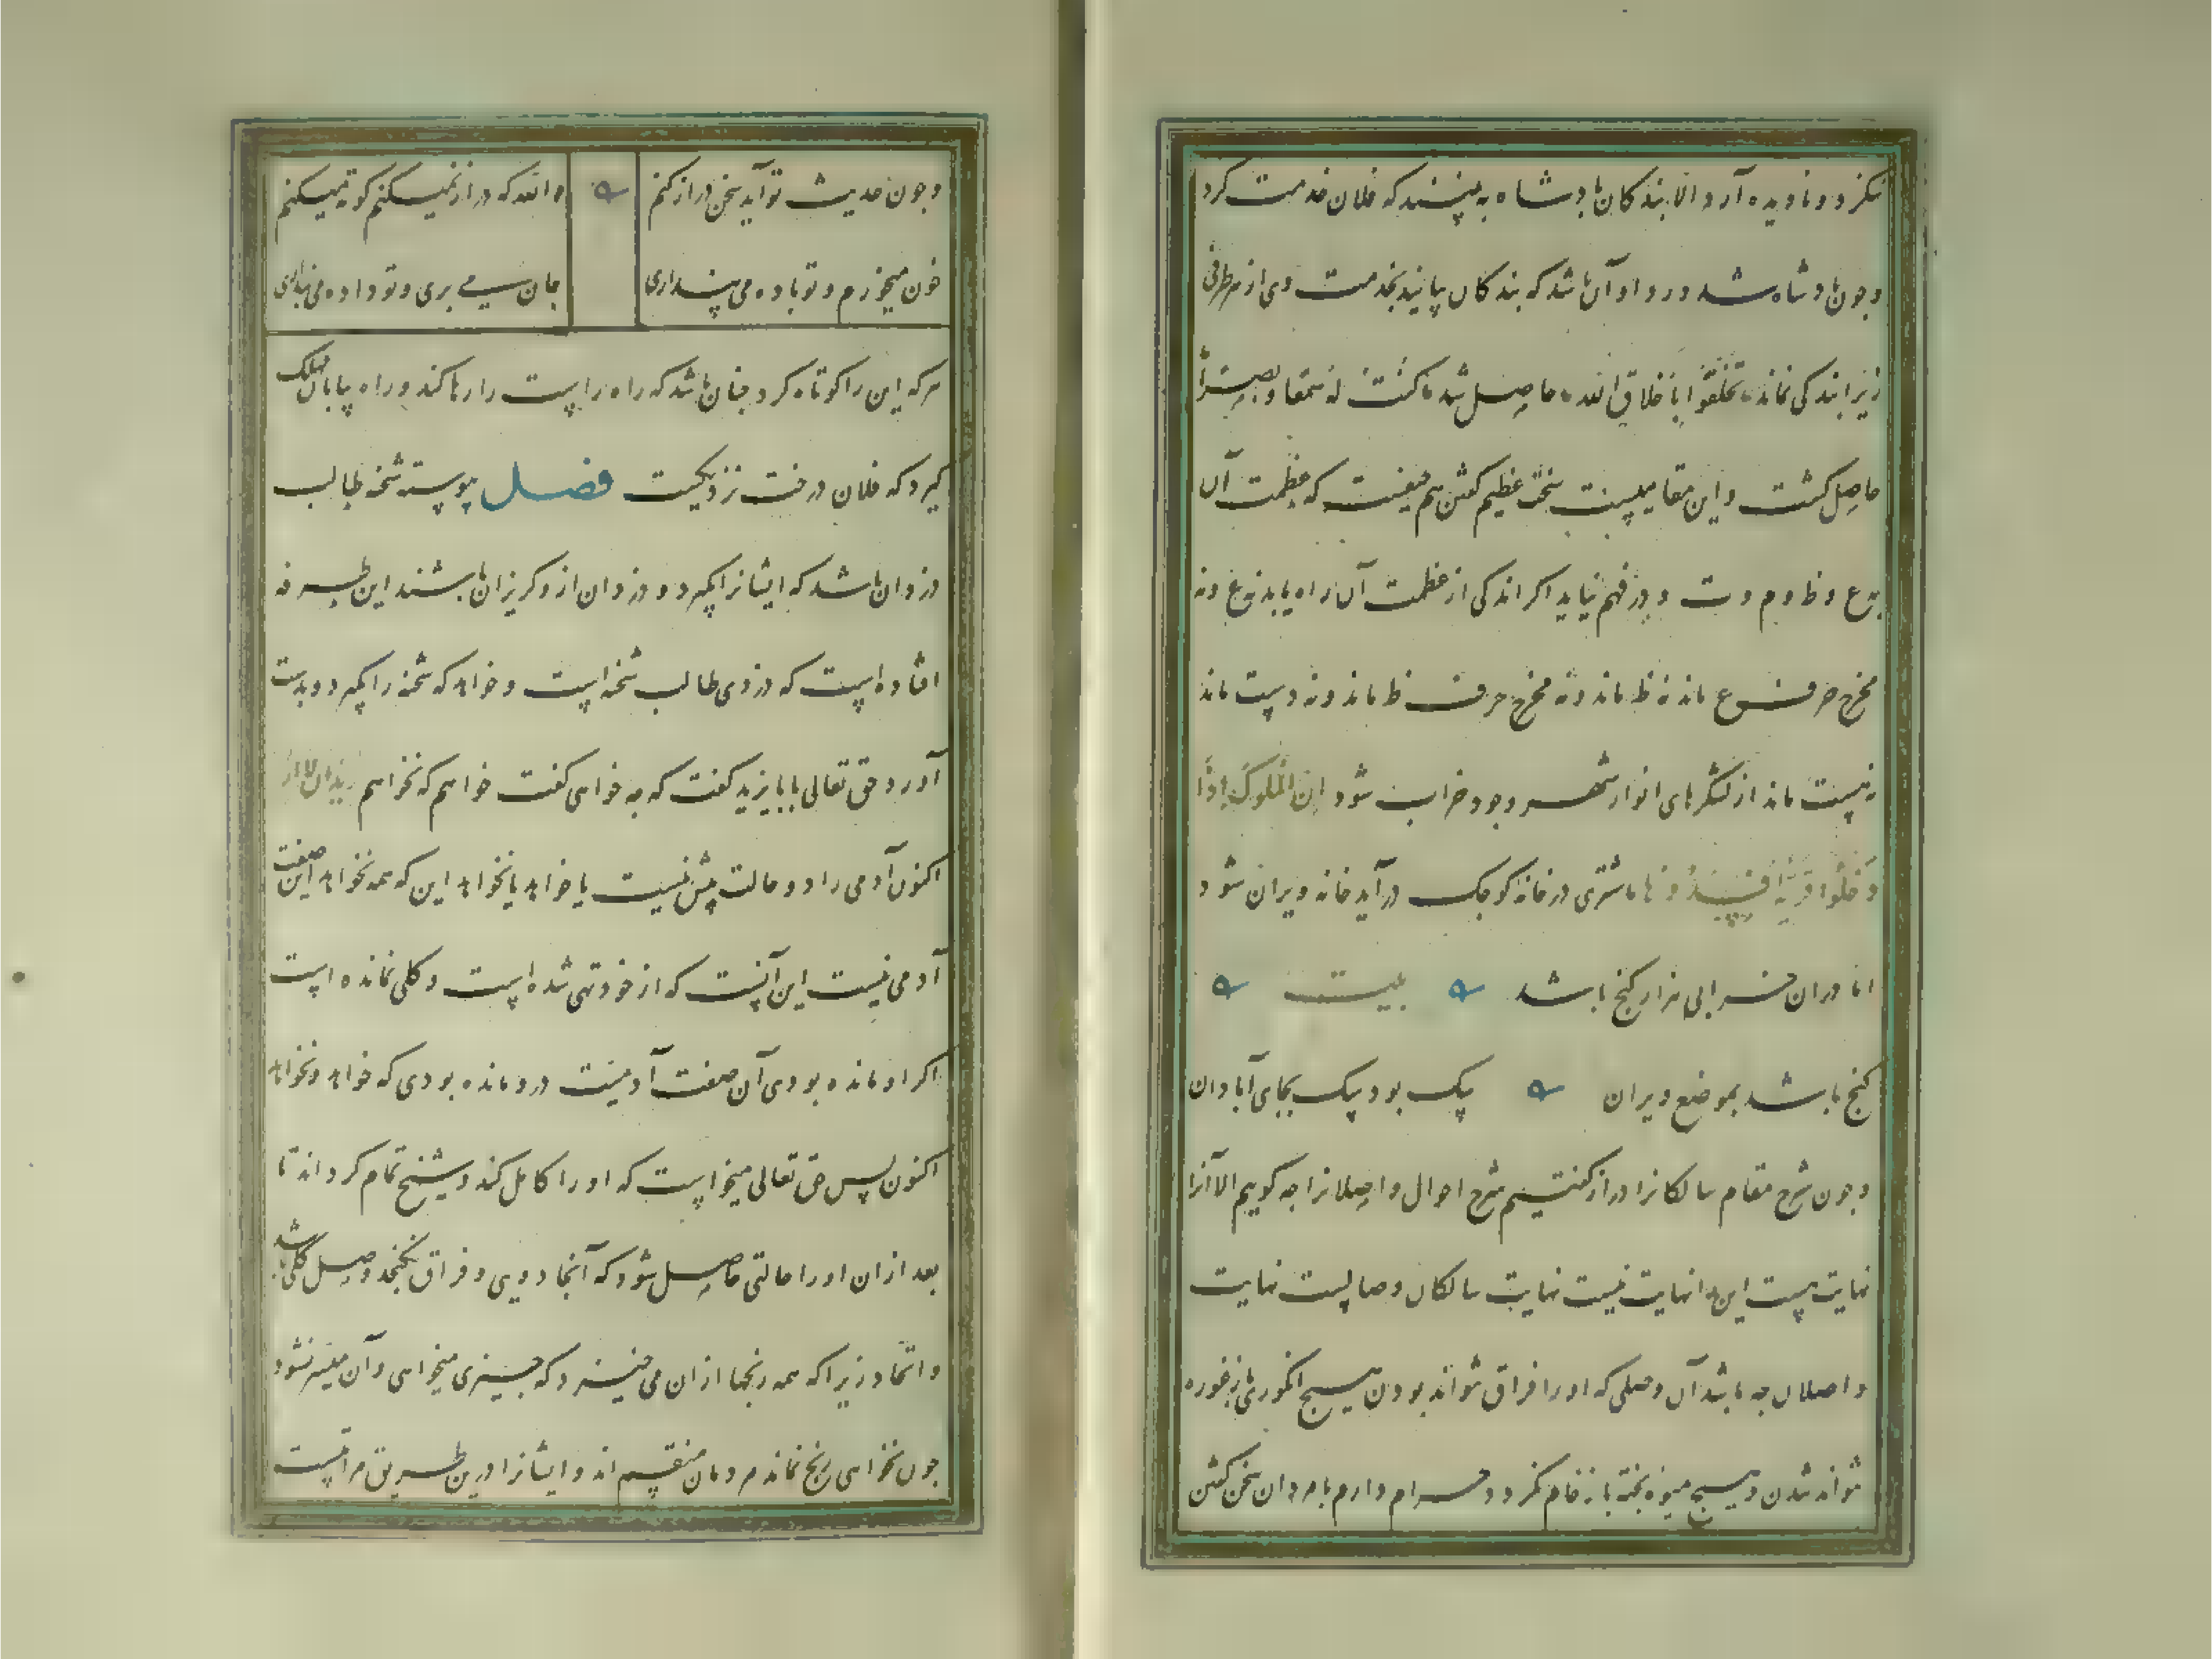 نکزد و نادیده آرد الا بندکان بادشاه به بینند که فلان خدمت کرد
و جون بادشاه شد در و او آن باشد که بندکان بیایند بخدمت وی از هر طرفی
زیرا بندکی نماند تخلقوا باخلاق الله حاصل شد کنت له سمعا و بصرا
حاصل کشت و این مقامیست سخت عظیم کفتن هم حیفست که عظمت آن
بع و ظ و م و ت در فهم نیاید اکر اندکی از عظمت آن راه یابد نه ع و نه
مخرج حرف ع ماند نه ظ ماند و نه مخرج حرف ظ ماند و نه دست ماند
نه هست ماند از لشکرهای انوار شهر وجود خراب شود ان الملوک اذا
دخلوا قریة افسدوها اشتری در خانه کوجک درآید خانه ویران شود
اما در آن خرابی هزار کنج باشد بیت
کنج باشد بموضع ویران سک بود سک بجای آبادان
و جون شرح مقام سالکانرا دراز کفتیم شرح احوال واصلانرا جه کوییم الا آنرا
نهایت هست این را نهایت نیست نهایت سالکان وصالست نهایت
واصلان جه باشد آن وصلی که او را فراق نتواند بودن هیج انکوری باز غوره
نتواند شدن و هیج میوهٔ بخته باز خام نکردد حرام دارم با مردان سخن کفتن
و جون حدیث تو آید سخن دراز کنم والله که دراز نمیکنم کوته میکنم
خون میخورم و تو باده می بنداری جان می بری و تو داده می بنداری
هر که این را کوتاه کرد جنان باشد که راه راست را رها کند و راه بیابان مهلک
کیرد که فلان درخت نزدیکست فصل بیوسته شحنه طالب
دزدان باشد که ایشانرا بکیرد و دزدان ازو کریزان باشند این طرفه
افتاده است که دزدی طالب شحنه است و خواهد که شحنه را بکیرد و بدست
آورد حق تعالی بابایزید کفت که جه خواهی کفت خواهم که نخواهم
اکنون آدمی را دو حالت بیش نیست یا خواهد یا نخواهد این که همه نخواهد این صفت
آدمی نیست این آنست که از خود تهی شده است و کلی نمانده است
اکر او مانده بودی آن صفت آدمیت درو مانده بودی که خواهد و نخواهد
اکنون بس حق تعالی میخواست که او را کامل کند و شیخ تمام کرداند تا
بعد از آن او را حالتی حاصل شود که آنجا دویی و فراق نکنجد وصل کلی باشد
و اتحاد زیرا که همه رنجها از آن می خیزد که جیزی میخواهی و آن میسر نشود
جون نخواهی رنج نماند مردان منقسم اند و ایشانرا درین طریق مراتبست